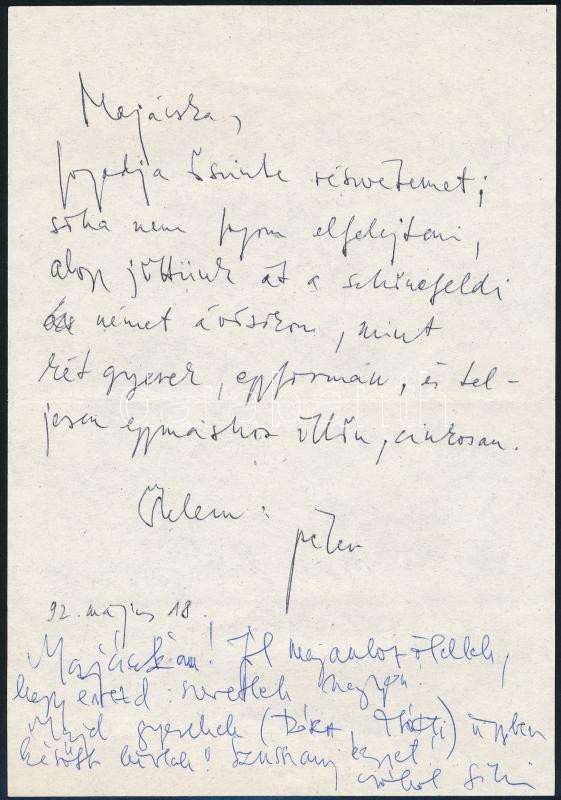 Majácska,
fogadja őszinte részvétemet;
soha nem fogom elfelejteni,
ahogy jöttünk át a schönefeldi
német ávósokon, mint
két gyerek, egyformán, és tel-
jesen egymáshoz illőn, cinkosan.
Ölelem:
Péter
92. május 18.
Majácskám! Jól magamhoz öllelek,
hogy érezd: szeretlek nagyon.
Majd gyerekek ( ) ügyben
később hívlak! kezjét
csókol
darabanth